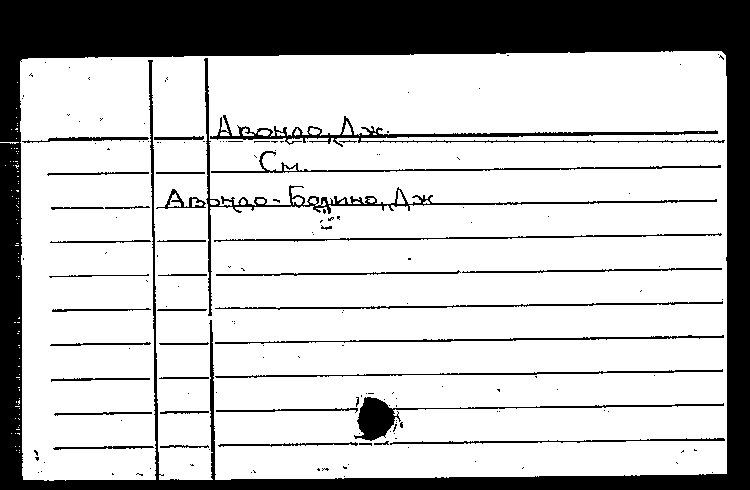 Авондо, Дж.
См.
Авондо-Бодино, Дж